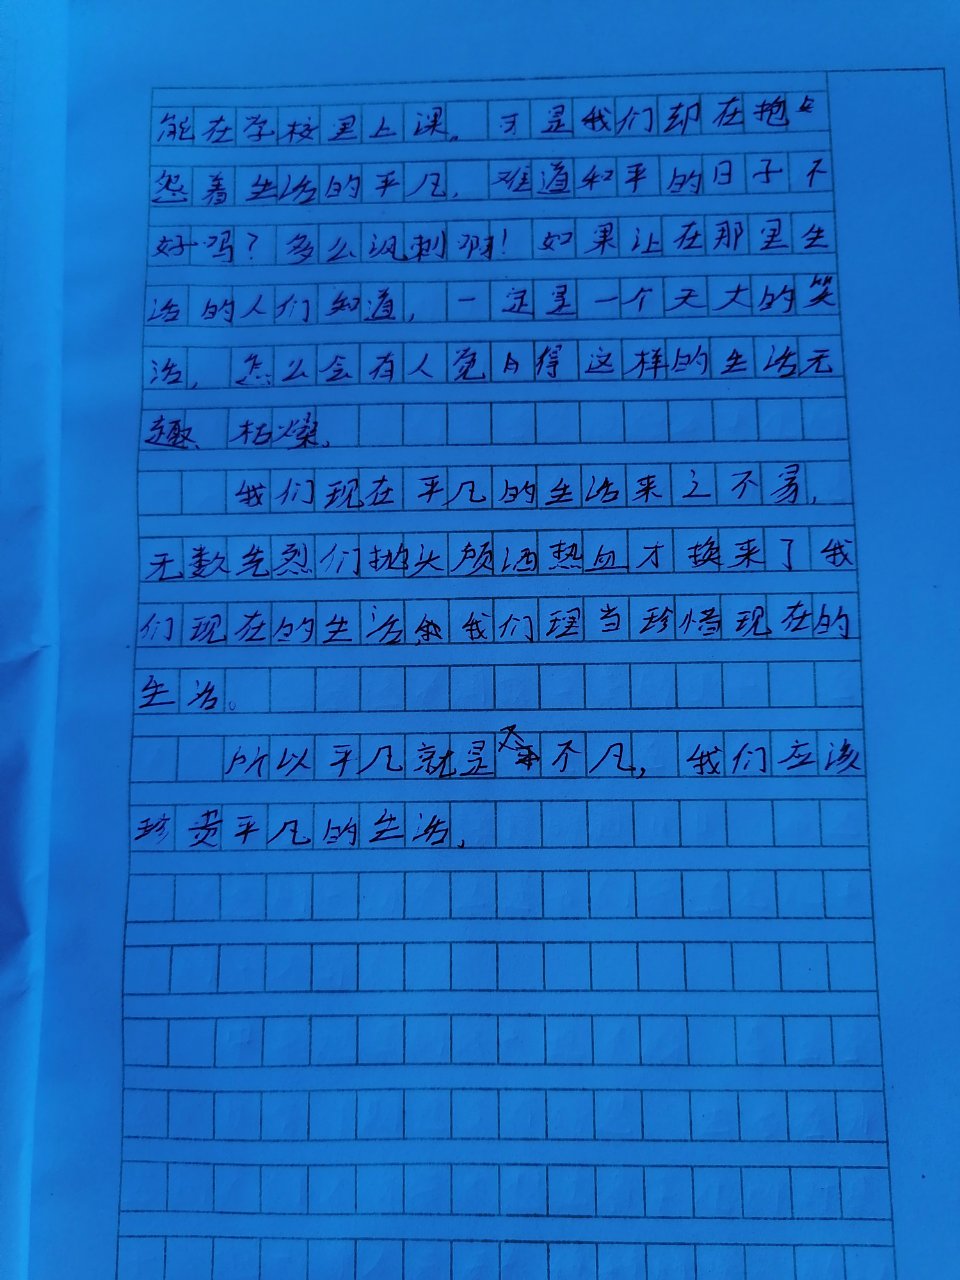 能在学校里上课。可是我们却在抱
怨着生活的平凡，难道和平的日子不
好吗？多么讽刺啊！如果让在那里生
活的人们知道，一定是一个天大的笑
活，怎么会有人觉得这样的生活无
趣、枯燥。
我们现在平凡的生活来之不易，
无数先烈们抛头颅洒热血才换来了我
们现在的生活我们理当珍惜现在的
生活。
所以平凡就是不凡，我们应该
珍贵平凡的生活。